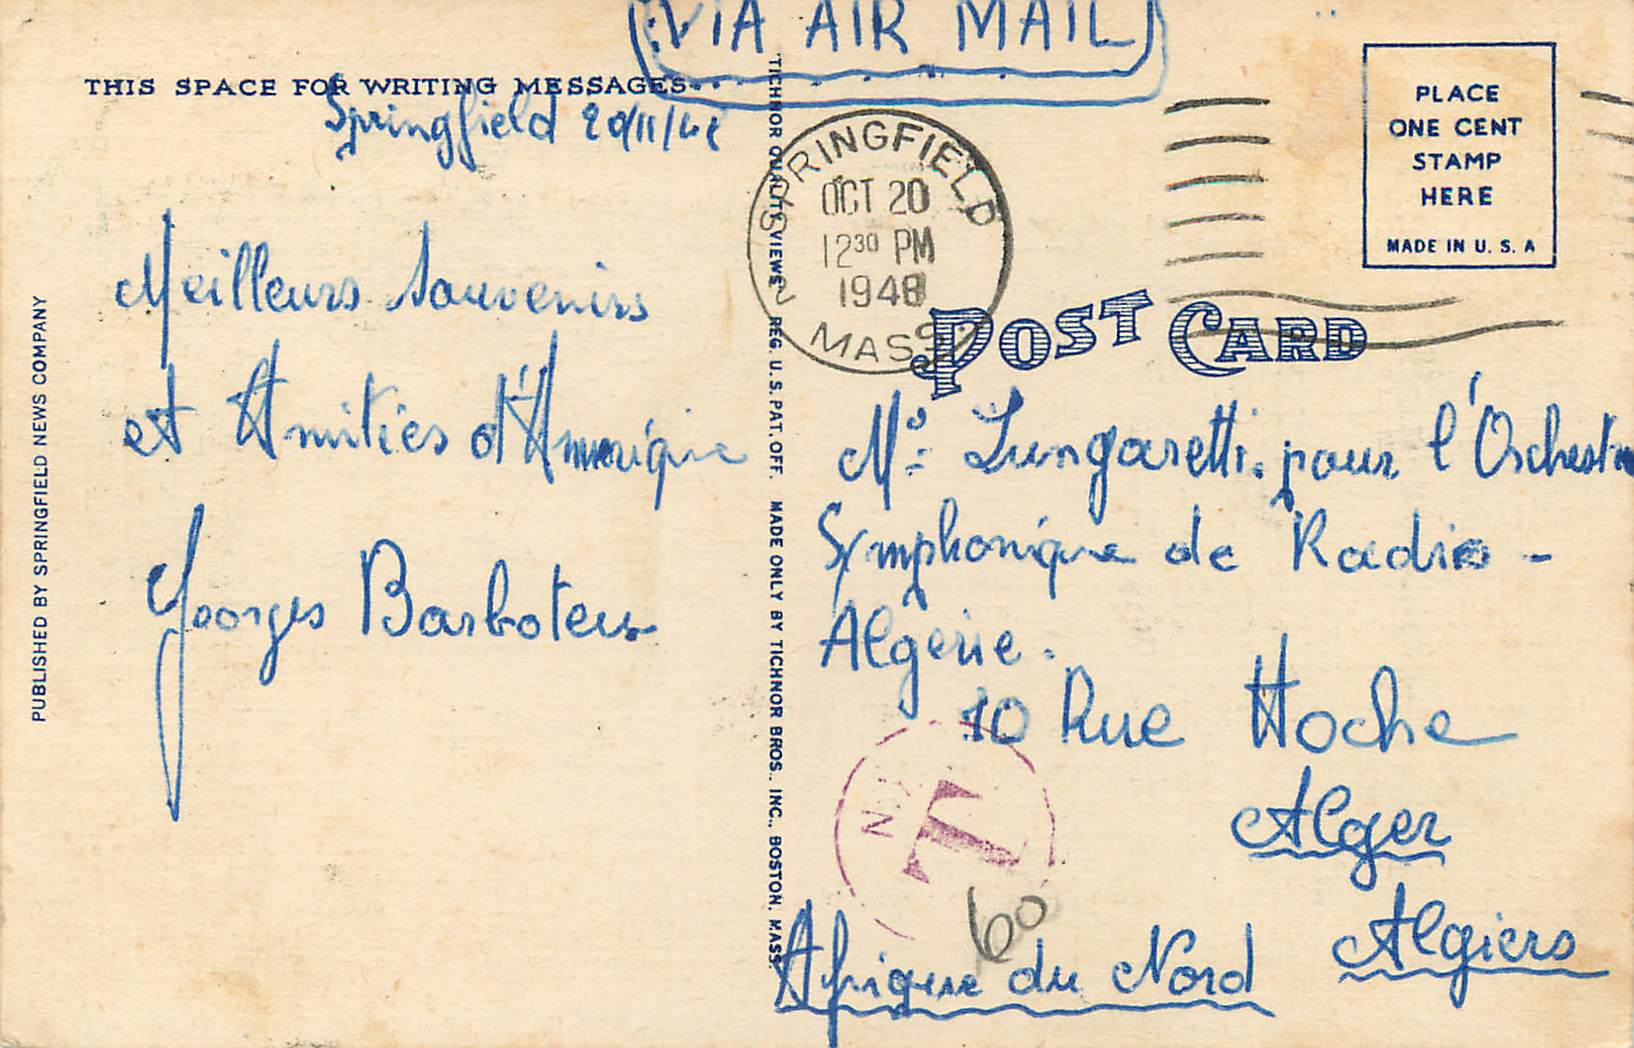 VIA AIR MAIL
THIS SPACE FOR WRITING MESSAGES
Springfield 20/11/48
Meilleurs souvenirs
et Amitiés d'Amérique
Georges Barboteu
PUBLISHED BY SPRINGFIELD NEWS COMPANY
"TICHNOR QUALITY VIEWS," REG. U. S. PAT. OFF. MADE ONLY BY TICHNOR BROS., INC., BOSTON, MASS.
SPRINGFIELD
OCT 20
12 30 PM
1948
2
MASS.
PLACE
ONE CENT
STAMP
HERE
MADE IN U. S. A
POST CARD
Mr: Lungaretti. pour l'Orchestre
Symphonique de Radio -
Algérie.
10 Rue Hoche
Alger
Algiers
Afrique du Nord
N.Y.
T
60